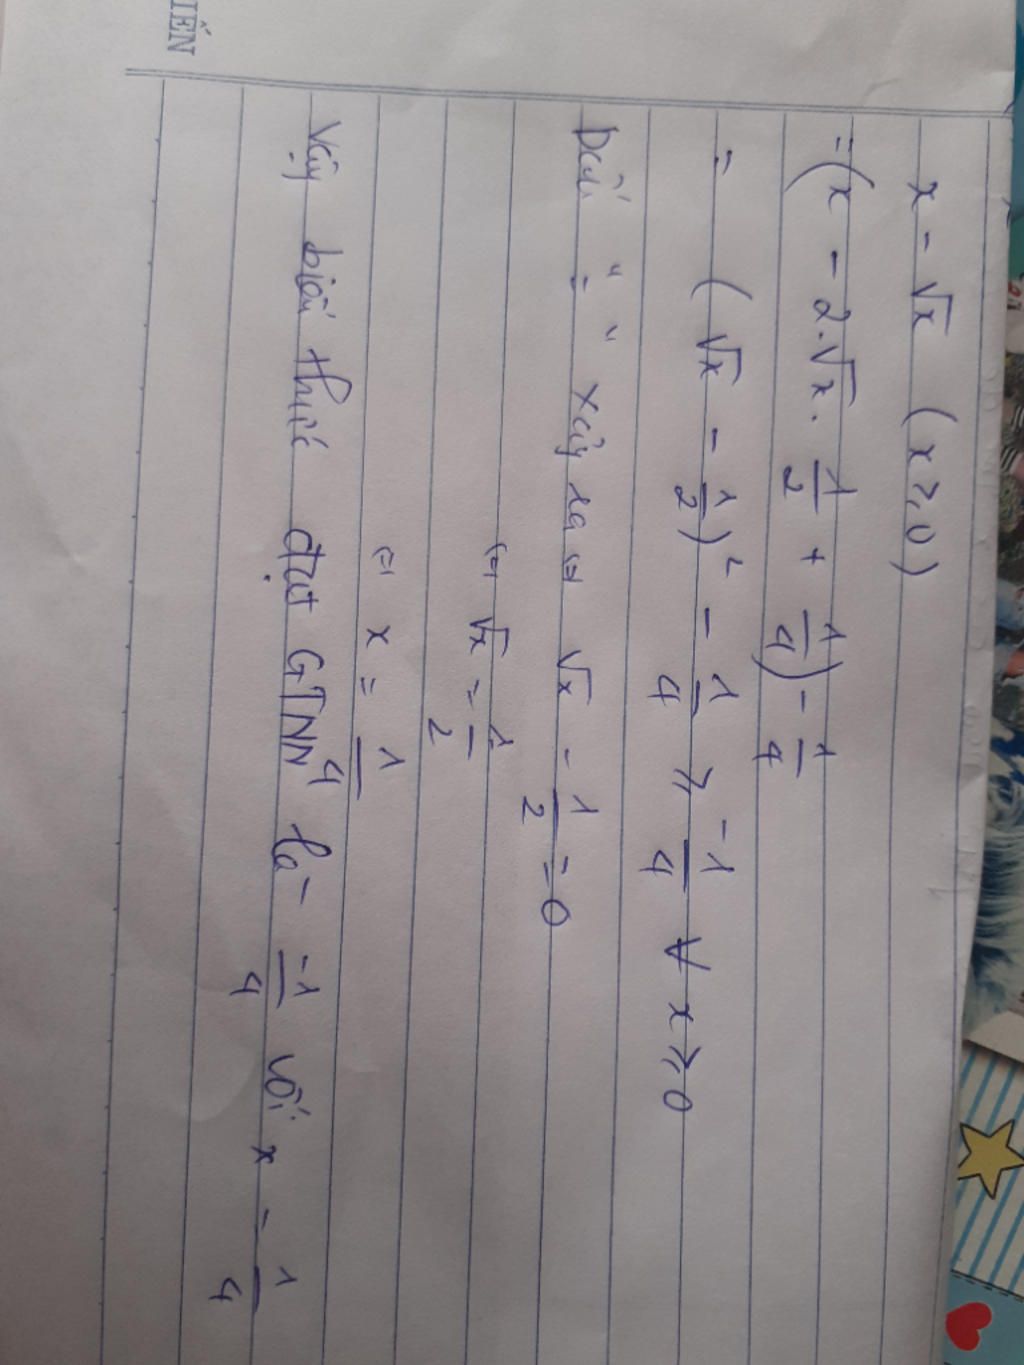 IẾN
x - √x (x ≥ 0)
= (x - 2.√x. 1/2 + 1/4) - 1/4
= (√x - 1/2)² - 1/4 ≥ -1/4 ∀ x ≥ 0
Dấu "=" xảy ra ⇔ √x - 1/2 = 0
⇔ √x = 1/2
⇔ x = 1/4
Vậy biểu thức đạt GTNN là -1/4 với x = 1/4